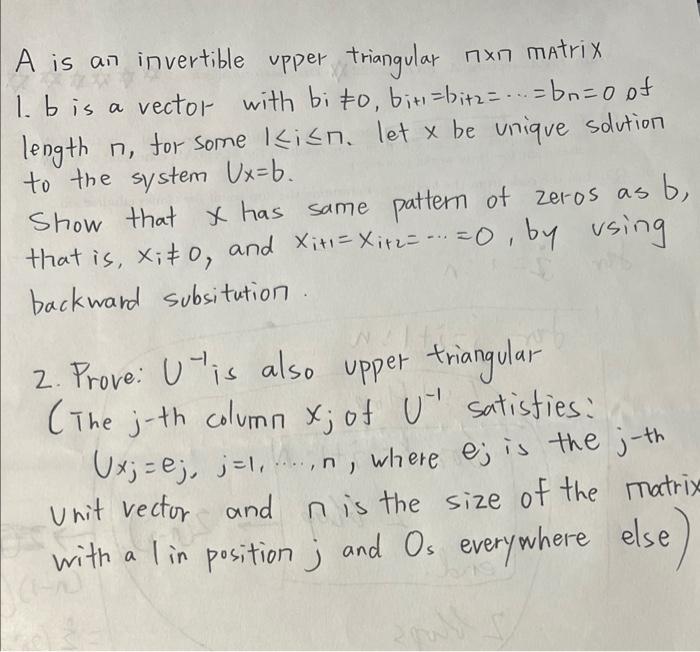 A is an invertible upper triangular n×n matrix
1. b is a vector with bi ≠0, bi+1=bi+2=⋯=bn=0 of
length n, for some 1≤i≤n. let x be unique solution
to the system Ux=b.
Show that x has same pattern of zeros as b,
that is, xi≠0, and xi+1=xi+2=⋯=0, by using
backward subsitution.
2. Prove: U⁻¹ is also upper triangular
(The j-th column xj of U⁻¹ satisfies:
Uxj=ej, j=1,⋯,n, where ej is the j-th
Unit vector and n is the size of the matrix
with a 1 in position j and 0s everywhere else)